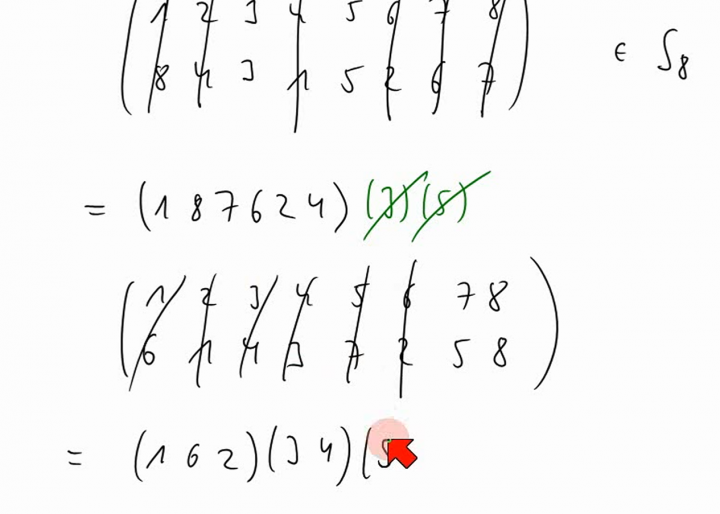 ( 1 2 3 4 5 6 7 8 ) ∈ S₈
( 8 4 3 1 5 2 6 7 )
= (1 8 7 6 2 4) (3) (5)
( 1 2 3 4 5 6 7 8 )
( 6 1 4 3 7 2 5 8 )
= (1 6 2) (3 4) (5